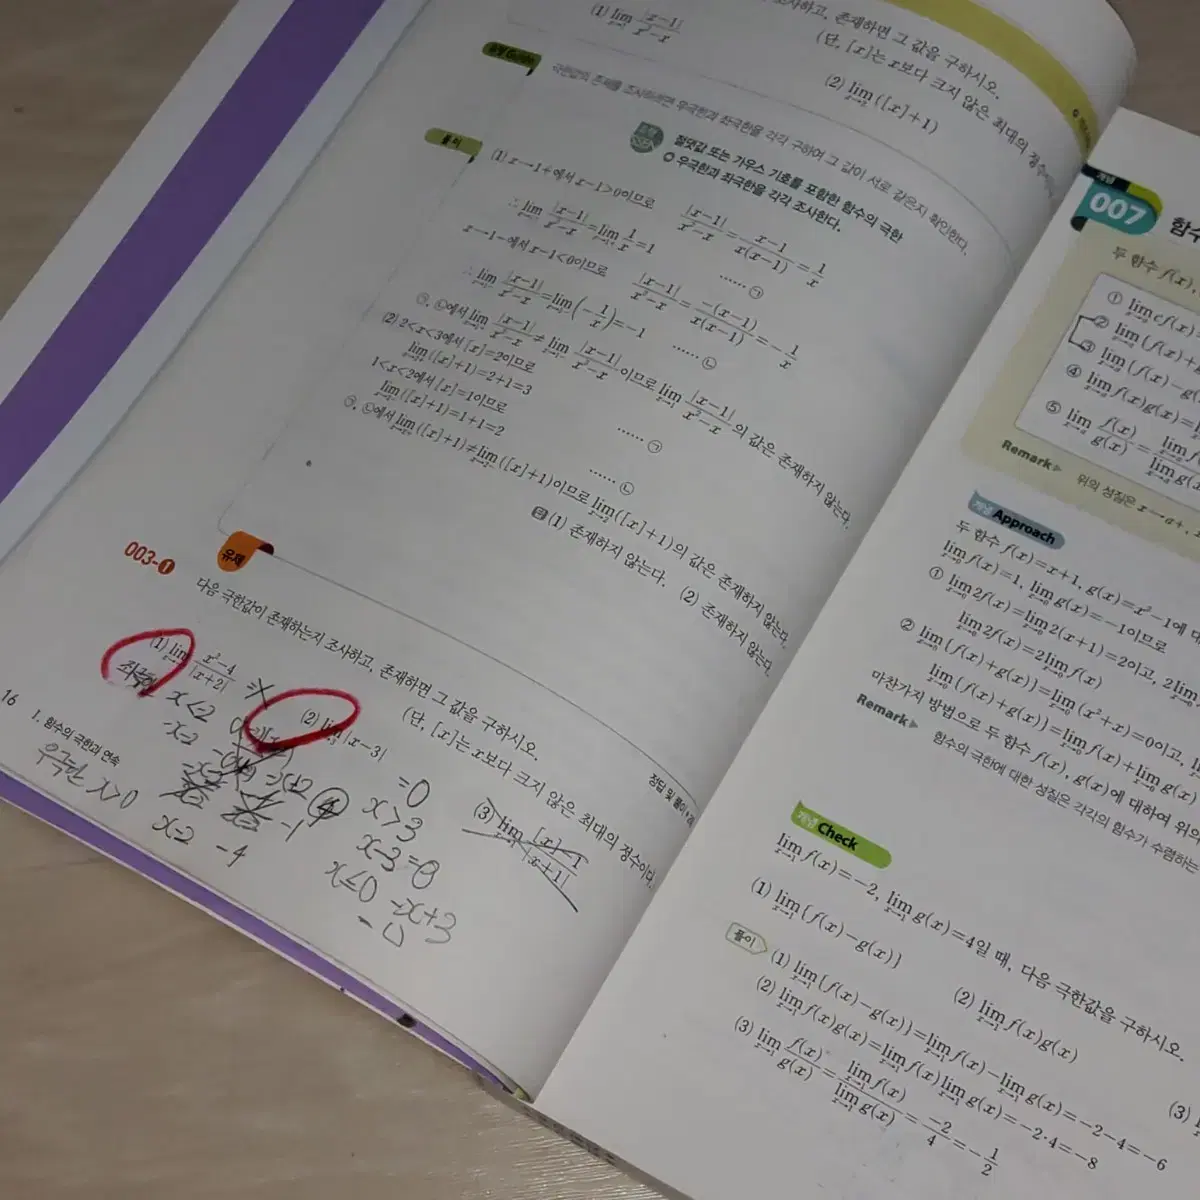 조사하고, 존재하면 그 값을 구하시오.
(단, [x]는 x보다 크지 않은 최대의 정수
(1) lim |x-1|/(x²-x)
(2) lim ([x]+1)
극한값의 존재를 조사하려면 우극한과 좌극한을 각각 구하여 그 값이 서로 같은지 확인한다.
절댓값 또는 가우스 기호를 포함한 함수의 극한
우극한과 좌극한을 각각 조사한다.
풀이
(1) x→1+에서 x-1>0이므로 |x-1|/(x²-x) = (x-1)/(x(x-1)) = 1/x
∴ lim |x-1|/(x²-x) = lim 1/x = 1 …… ㉠
x→1-에서 x-1<0이므로 |x-1|/(x²-x) = -(x-1)/(x(x-1)) = -1/x
∴ lim |x-1|/(x²-x) = lim (-1/x) = -1 …… ㉡
㉠, ㉡에서 lim |x-1|/(x²-x) ≠ lim |x-1|/(x²-x) 이므로 lim |x-1|/(x²-x) 의 값은 존재하지 않는다.
(2) 2<x<3에서 [x]=2이므로
lim ([x]+1)=2+1=3 …… ㉠
1<x<2에서 [x]=1이므로
lim ([x]+1)=1+1=2 …… ㉡
㉠, ㉡에서 lim ([x]+1)≠lim ([x]+1)이므로 lim ([x]+1)의 값은 존재하지 않는다.
답 (1) 존재하지 않는다. (2) 존재하지 않는다.
유제
003-1
다음 극한값이 존재하는지 조사하고, 존재하면 그 값을 구하시오.
(단, [x]는 x보다 크지 않은 최대의 정수이다.)
(1) lim (x²-4)/|x+2|
(2) lim |x-3|
(3) lim
=0
x<-2
x>3
x-3=0
우극한 x>0
x=2 -4
-x+3
정답 및 풀이
16 Ⅰ. 함수의 극한과 연속
개념
007 함수
두 함수 f(x),
① lim cf(x)
② lim {f(x)+g
③ lim {f(x)-g(
④ lim f(x)g(x)=l
⑤ lim f(x)/g(x) = lim f( / lim g(x
Remark▶ 위의 성질은 x→a+, x
개념 Approach
두 함수 f(x)=x+1, g(x)=x²-1에 대
lim f(x)=1, lim g(x)=-1이므로
① lim 2f(x)=lim 2(x+1)=2이고, 2lim
lim 2f(x)=2lim f(x)
② lim {f(x)+g(x)}=lim (x²+x)=0이고,
lim {f(x)+g(x)}=lim f(x)+lim g(x)
마찬가지 방법으로 두 함수 f(x), g(x)에 대하여 위의
Remark▶ 함수의 극한에 대한 성질은 각각의 함수가 수렴하는
개념 Check
lim f(x)=-2, lim g(x)=4일 때, 다음 극한값을 구하시오.
(1) lim {f(x)-g(x)}
(2) lim f(x)g(x)
(3)
풀이
(1) lim {f(x)-g(x)}=lim f(x)-lim g(x)=-2-4=-6
(2) lim f(x)g(x)=lim f(x) lim g(x)=-2·4=-8
(3) lim f(x)/g(x) = lim f(x)/lim g(x) = -2/4 = -1/2